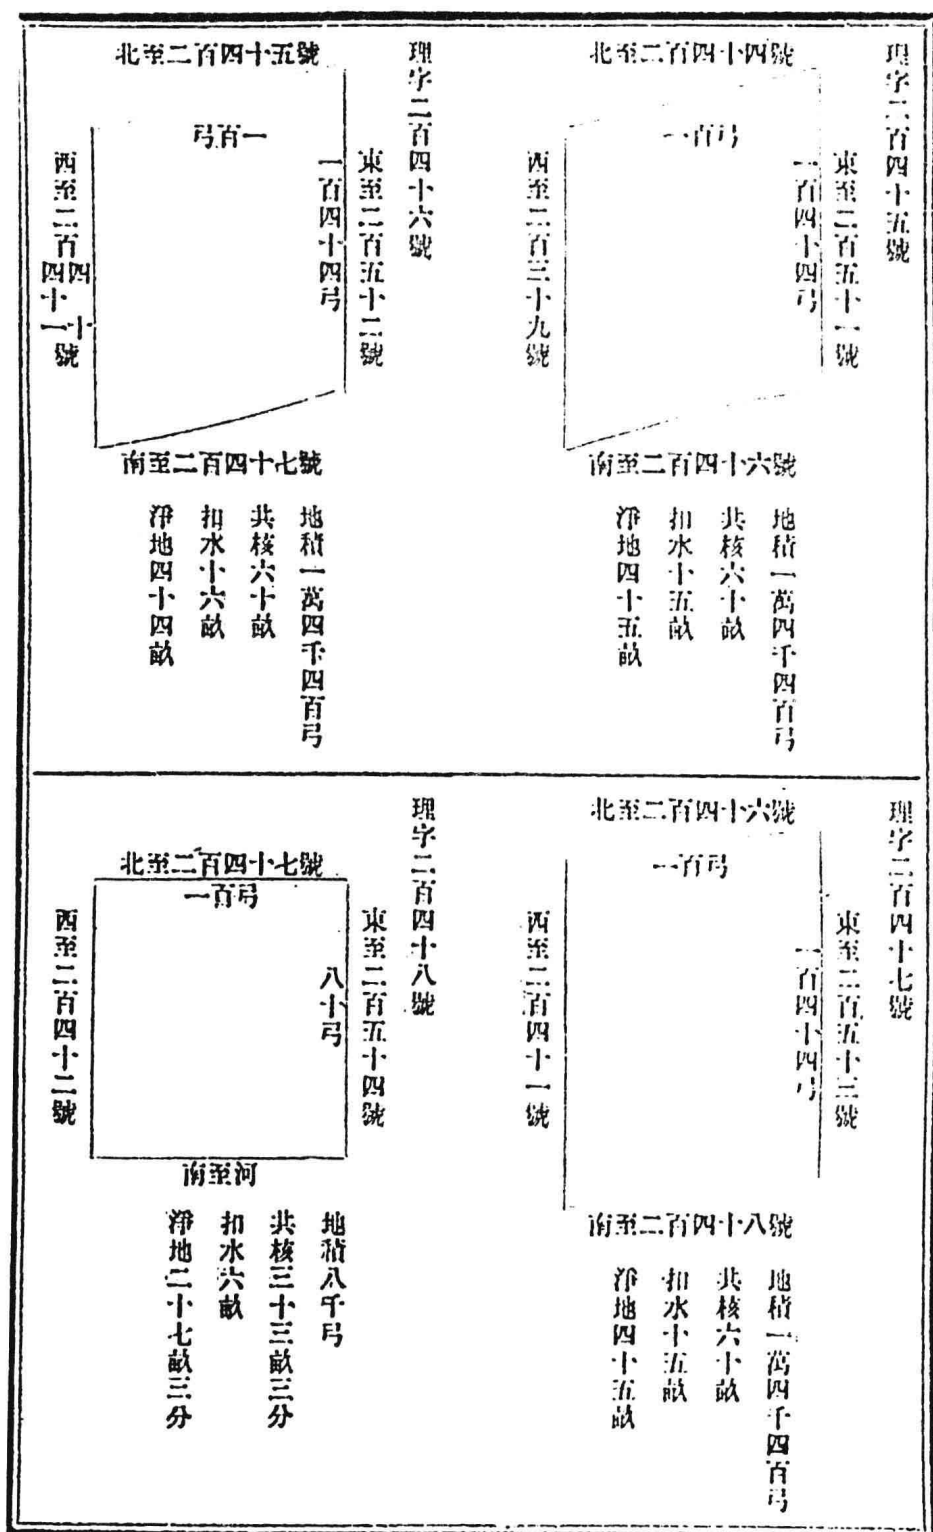 理字二百四十五號
北至二百四十四號
一百弓
東至二百五十一號
一百四十四弓
西至二百三十九號
南至二百四十六號
地積一萬四千四百弓
共核六十畝
扣水十五畝
淨地四十五畝
理字二百四十六號
北至二百四十五號
一百弓
東至二百五十二號
一百四十四弓
西至二百四十四十一號
南至二百四十七號
地積一萬四千四百弓
共核六十畝
扣水十六畝
淨地四十四畝
理字二百四十七號
北至二百四十六號
一百弓
東至二百五十三號
一百四十四弓
西至二百四十一號
南至二百四十八號
地積一萬四千四百弓
共核六十畝
扣水十五畝
淨地四十五畝
理字二百四十八號
北至二百四十七號
一百弓
東至二百五十四號
八十弓
西至二百四十二號
南至河
地積八千弓
共核三十三畝三分
扣水六畝
淨地二十七畝三分